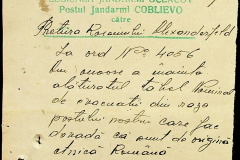 Postul Jandarmi COBLEVO
către
Pretura Raionului Alexanderfeld
La ord. No. 4056
Am onoare a înainta
alaturatul tabel Nominal
de evacuati din raza
postului nostru care fac
dovadă că sunt de origină
etnică Română